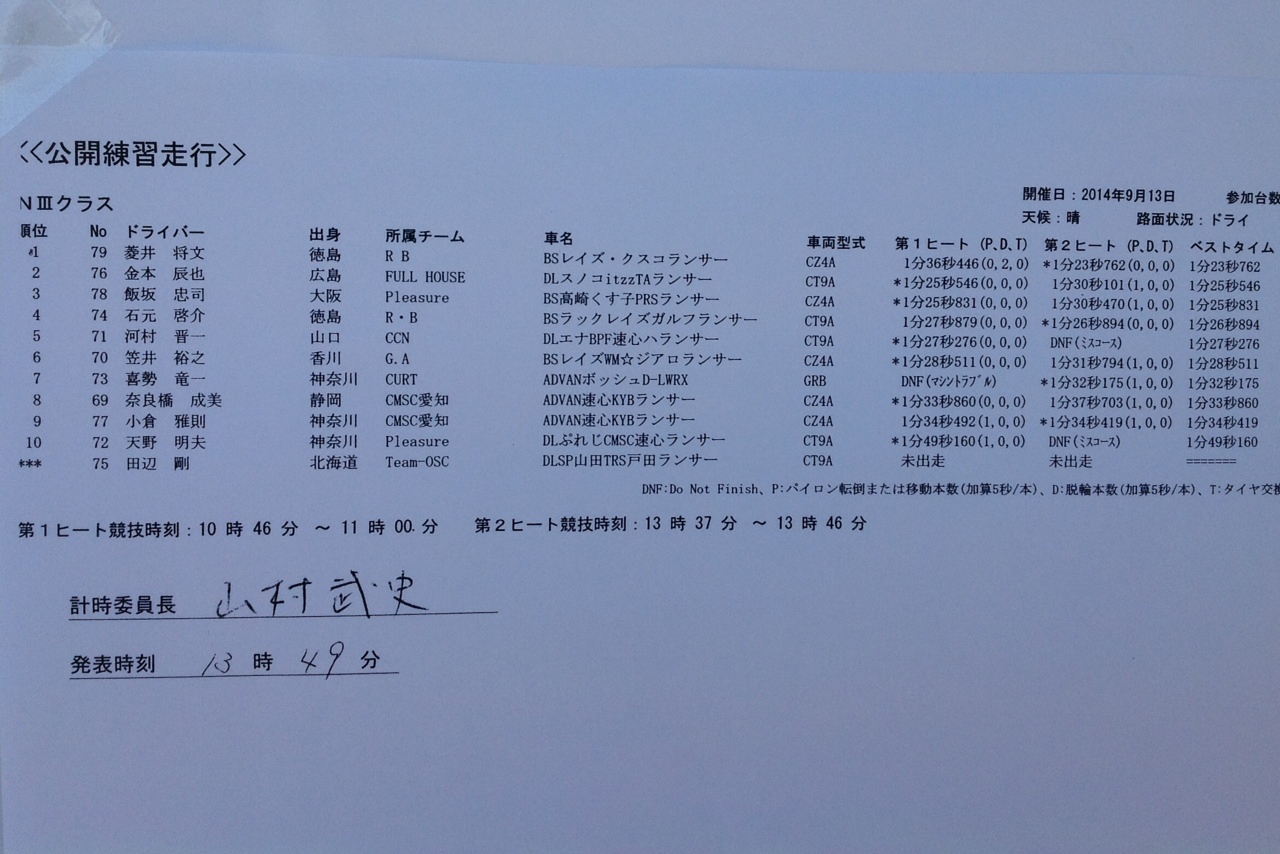 <<公開練習走行>>
NⅢクラス 開催日：2014年9月13日 参加台数
天候：晴 路面状況：ドライ
順位 No ドライバー 出身 所属チーム 車名 車両型式 第１ヒート (P、D、T) 第２ヒート (P、D、T) ベストタイム
*1 79 菱井 将文 徳島 R B BSレイズ・クスコランサー CZ4A 1分36秒446(0,2,0) *1分23秒762(0,0,0) 1分23秒762
2 76 金本 辰也 広島 FULL HOUSE DLスノコitzzTAランサー CT9A *1分25秒546(0,0,0) 1分30秒101(1,0,0) 1分25秒546
3 78 飯坂 忠司 大阪 Pleasure BS高崎くす子PRSランサー CZ4A *1分25秒831(0,0,0) 1分30秒470(1,0,0) 1分25秒831
4 74 石元 啓介 徳島 R・B BSラックレイズガルフランサー CT9A 1分27秒879(0,0,0) *1分26秒894(0,0,0) 1分26秒894
5 71 河村 晋一 山口 CCN DLエナBPF速心ハランサー CT9A *1分27秒276(0,0,0) DNF(ﾐｽｺｰｽ) 1分27秒276
6 70 笠井 裕之 香川 G.A BSレイズWM☆ジアロランサー CZ4A *1分28秒511(0,0,0) 1分31秒794(1,0,0) 1分28秒511
7 73 喜勢 竜一 神奈川 CURT ADVANボッシュD-LWRX GRB DNF(ﾏｼﾝﾄﾗﾌﾞﾙ) *1分32秒175(1,0,0) 1分32秒175
8 69 奈良橋 成美 静岡 CMSC愛知 ADVAN速心KYBランサー CZ4A *1分33秒860(0,0,0) 1分37秒703(1,0,0) 1分33秒860
9 77 小倉 雅則 神奈川 CMSC愛知 ADVAN速心KYBランサー CZ4A 1分34秒492(1,0,0) *1分34秒419(0,0,0) 1分34秒419
10 72 天野 明夫 神奈川 Pleasure DLぷれじCMSC速心ランサー CT9A *1分49秒160(1,0,0) DNF(ﾐｽｺｰｽ) 1分49秒160
*** 75 田辺 剛 北海道 Team-OSC DLSP山田TRS戸田ランサー CT9A 未出走 未出走 =======
DNF:Do Not Finish、P:パイロン転倒または移動本数(加算5秒/本)、D:脱輪本数(加算5秒/本)、T:タイヤ交換
第１ヒート競技時刻：10 時 46 分 ～ 11 時 00 分 第２ヒート競技時刻：13 時 37 分 ～ 13 時 46 分
計時委員長 山村武史
発表時刻 13 時 49 分